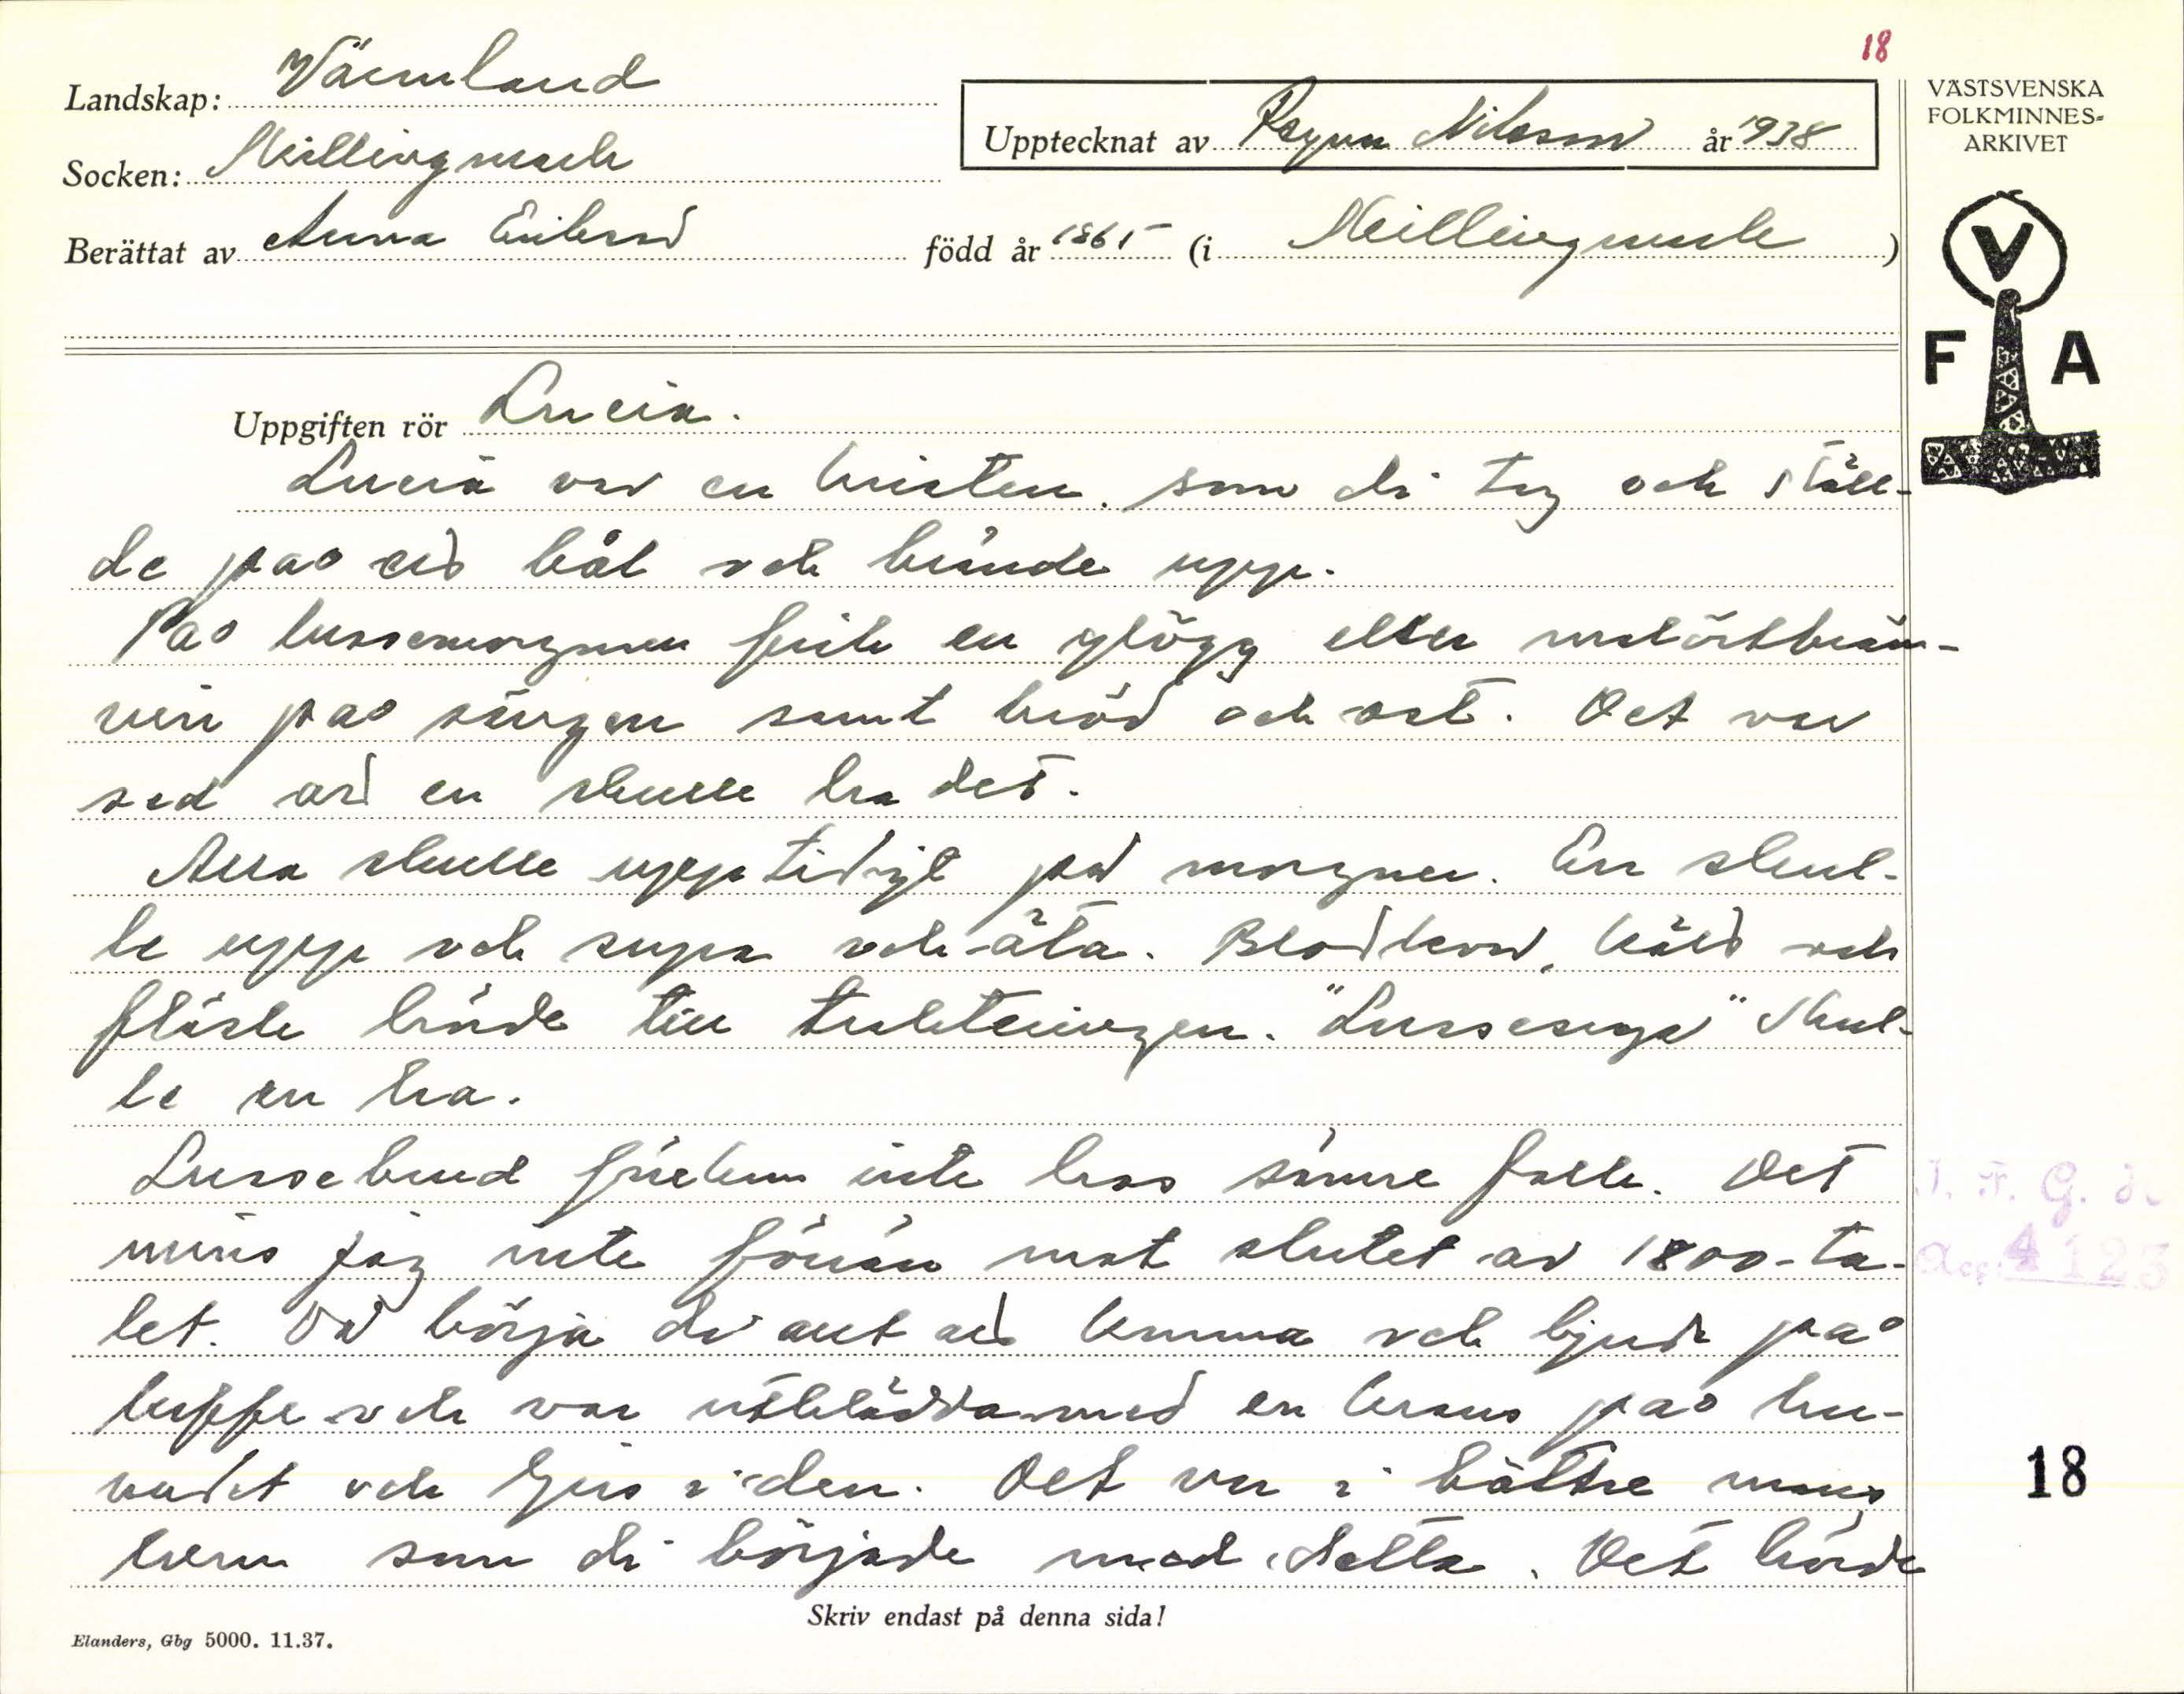 18
Landskap: Värmland
Socken: Skillingmark
Berättat av Anna Eriksson
Upptecknat av Ragnar Nilsson år 1938
född år 1865 (i Skillingmark)
VÄSTSVENSKA
FOLKMINNES-
ARKIVET
V
F A
Uppgiften rör Lucia.
Lucia var en kristen, som di tog och ställ-
de pao ett bål och brände upp.
Pao lussemorgonen fick en glögg eller malörtbrän-
vin pao sängen samt bröd och ost. Det var
sed att en skulle ha det.
Alla skulle upp tidigt på morgonen. En skul-
le upp och supa och äta. Blodkorv, kål och
fläsk hörde till trakteringen. "Lussesupa" skul-
le en ha.
Lussebrud förekom inte hos sämre folk. Det
minns jag inte förrän mot slutet av 1800-ta-
let. Då börja di allt att komma och bjuda pao
kaffe och var utklädda med en krans pao hu-
vudet och ljus i den. Det var i bättre mans
hem som di började med detta. Det hörde
Skriv endast på denna sida!
Elanders, Gbg 5000. 11.37.
I. F. G. H.
Acc. 4123
18